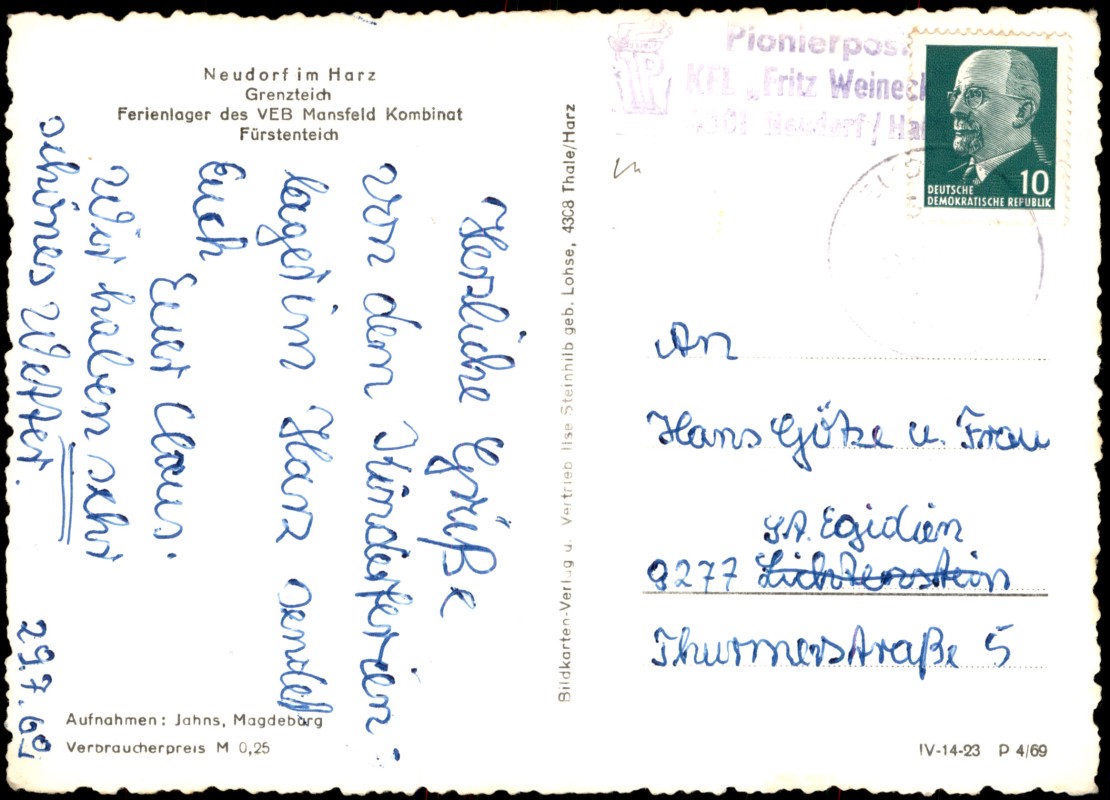 Neudorf im Harz
Grenzteich
Ferienlager des VEB Mansfeld Kombinat
Fürstenteich
Herzliche Grüße
von dem Kinderferien-
lager im Harz sendet
Euch
Euer Claus.
Wir haben sehr
schönes Wetter.
29.7.69
Aufnahmen: Jahns, Magdeburg
Verbraucherpreis M 0,25
Bildkarten-Verlag u. Vertrieb Ilse Steinhilb geb. Lohse, 4308 Thale/Harz
Pionierpost
KFL „Fritz Weineck
4301 Neudorf / Harz
10
DEUTSCHE
DEMOKRATISCHE REPUBLIK
An
Hans Götze u. Frau
St. Egidien
9277 Lichtenstein
Thurmerstraße 5
IV-14-23 P 4/69